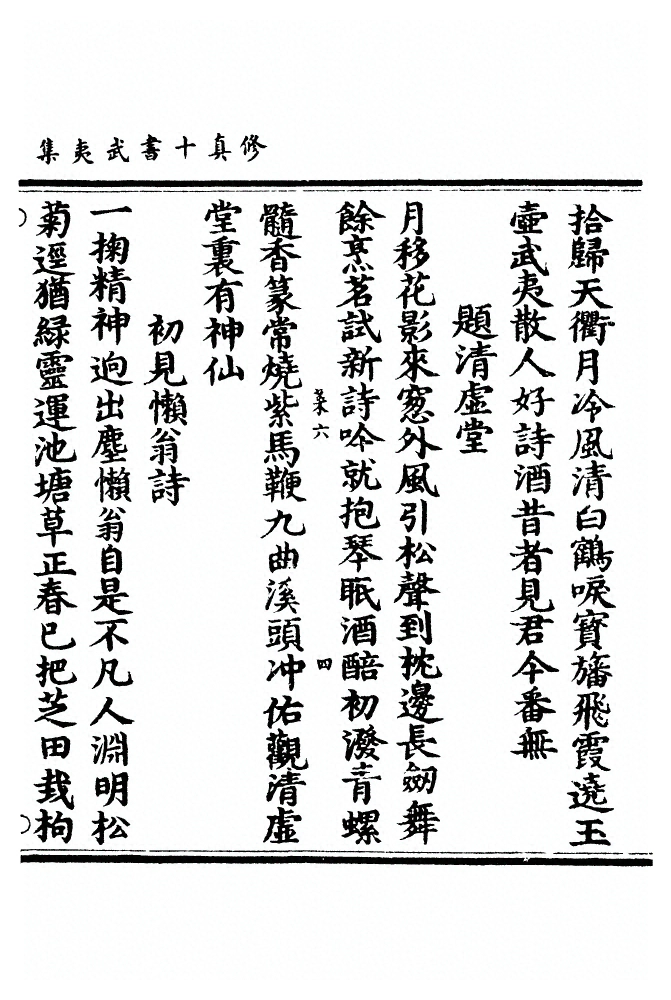 修真十書武夷集
拾歸天衢月冷風清白鶴唳寶旛飛霞遶玉
壺武夷散人好詩酒昔者見君今番無
題清虛堂
月移花影來窻外風引松聲到枕邊長劒舞
餘烹茗試新詩吟就抱琴眠酒醅初潑青螺
菜六
四
髓香篆常燒紫馬鞭九曲溪頭冲佑觀清虛
堂裏有神仙
初見懶翁詩
一掬精神逈出塵懶翁自是不凡人淵明松
菊逕猶綠靈運池塘草正春已把芝田栽枸